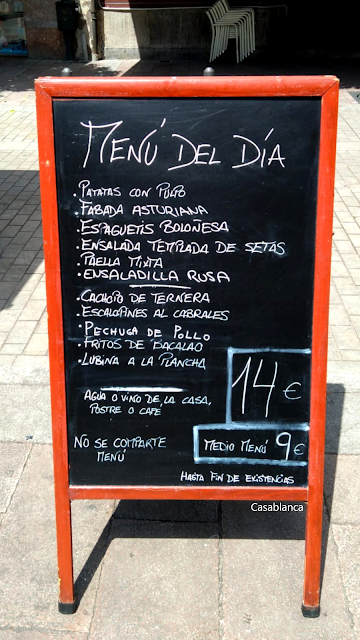 MENÚ DEL DÍA
. PATATAS CON PULPO
. FABADA ASTURIANA
. ESPAGUETIS BOLOÑESA
. ENSALADA TEMPLADA DE SETAS
. PAELLA MIXTA
. ENSALADILLA RUSA
. CACHOPO DE TERNERA
. ESCALOPINES AL CABRALES
. PECHUGA DE POLLO
. FRITOS DE BACALAO
. LUBINA A LA PLANCHA
14 €
AGUA O VINO DE LA CASA,
POSTRE O CAFE
MEDIO MENÚ 9€
NO SE COMPARTE
MENÚ
HASTA FIN DE EXISTENCIAS
Casablanca